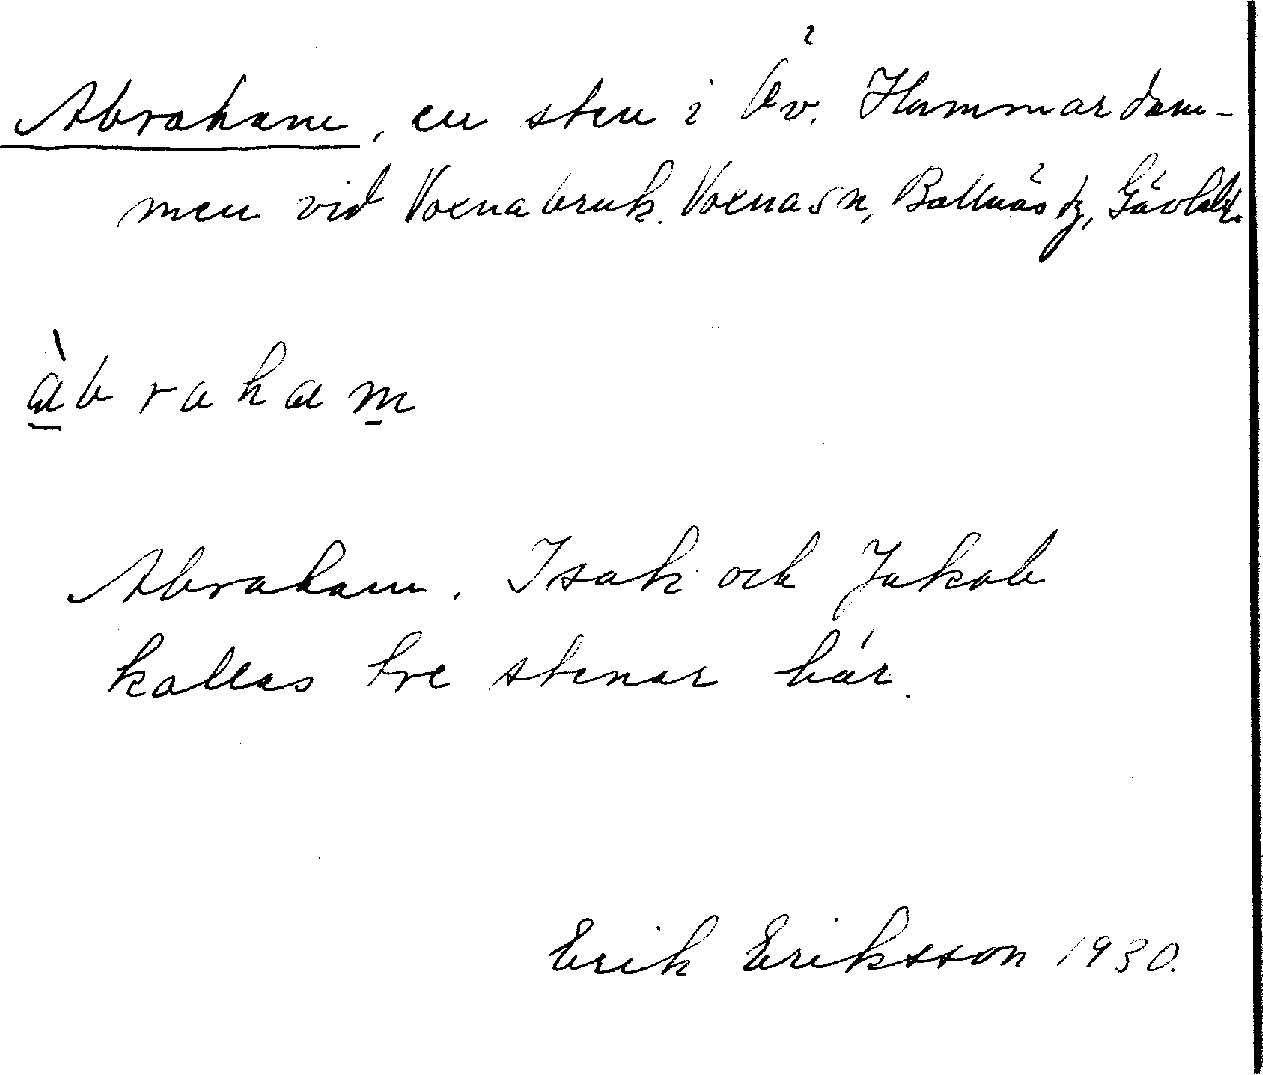 Abraham, en sten i Öv. Hammardam-
men vid Voxnabruk. Voxna sn, Bollnäs tg, Gävlebl.
àbraham
Abraham, Isak och Jakob
kallas tre stenar här.
Erik Eriksson 1930.